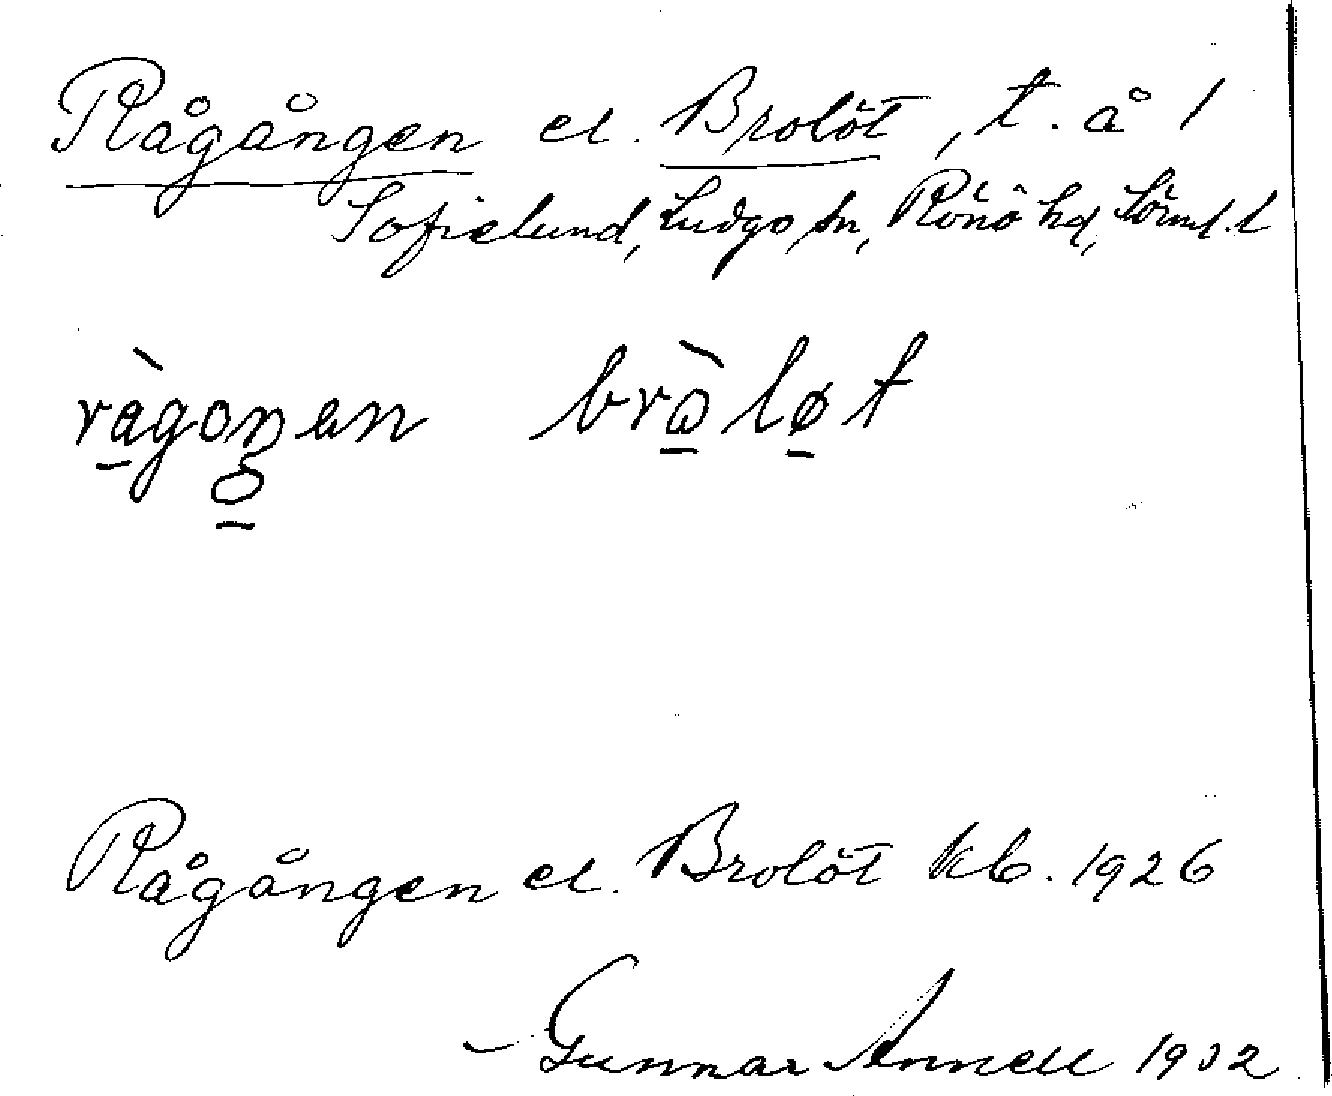 Rågången el. Brolöt, t. å 1
Sofielund, Ludgo sn, Rönö hd, Sörml. l
ràgoŋen bròløt
Rågången el. Brolöt kb. 1926
Gunnar Annell 1932